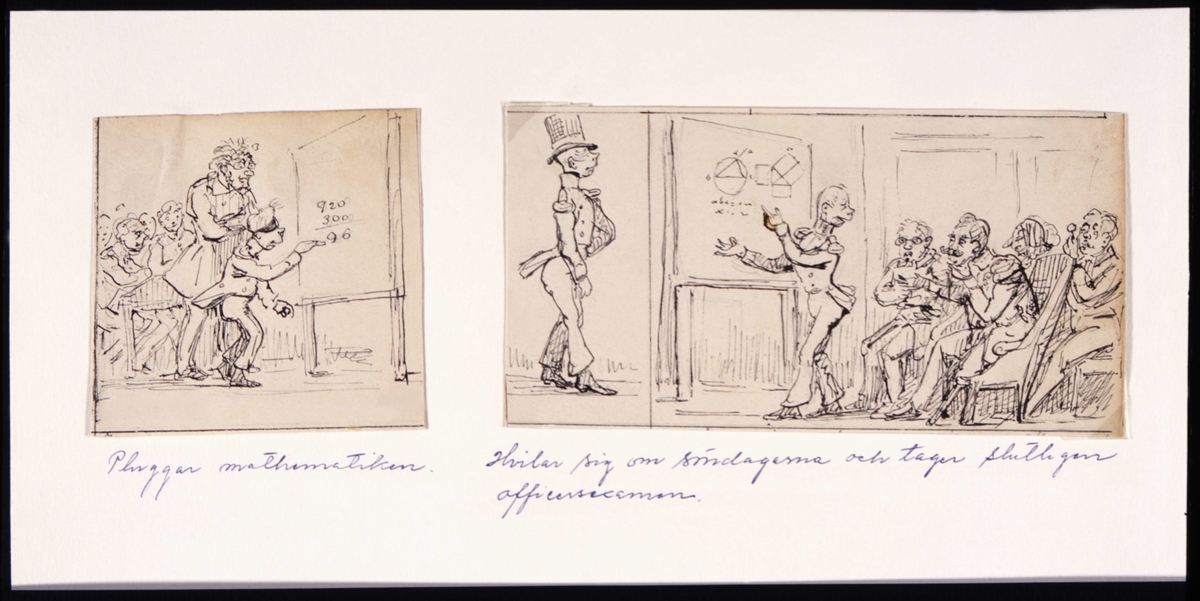 920
300
96
Pluggar mathematiken.
Hvilar sig om söndagarna och tager slutligen
officersexamen.